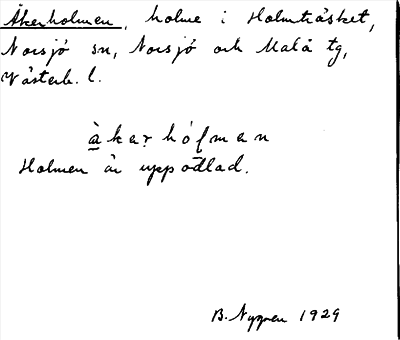 Åkerholmen, holme i Holmträsket,
Norsjö sn, Norsjö och Malå tg,
Västerb. l.
åkerhólmen
Holmen är uppodlad.
B. Nygren 1929